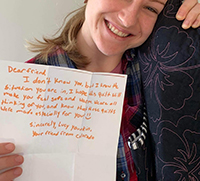 Dear friend,
I don't know you, but I know the
situation you are in, I hope this quilt will
make you feel safe and warm. Were all
thinking of you, and know that these quilts
were made especially for you!
Sincerely, Lucy
Your friend from